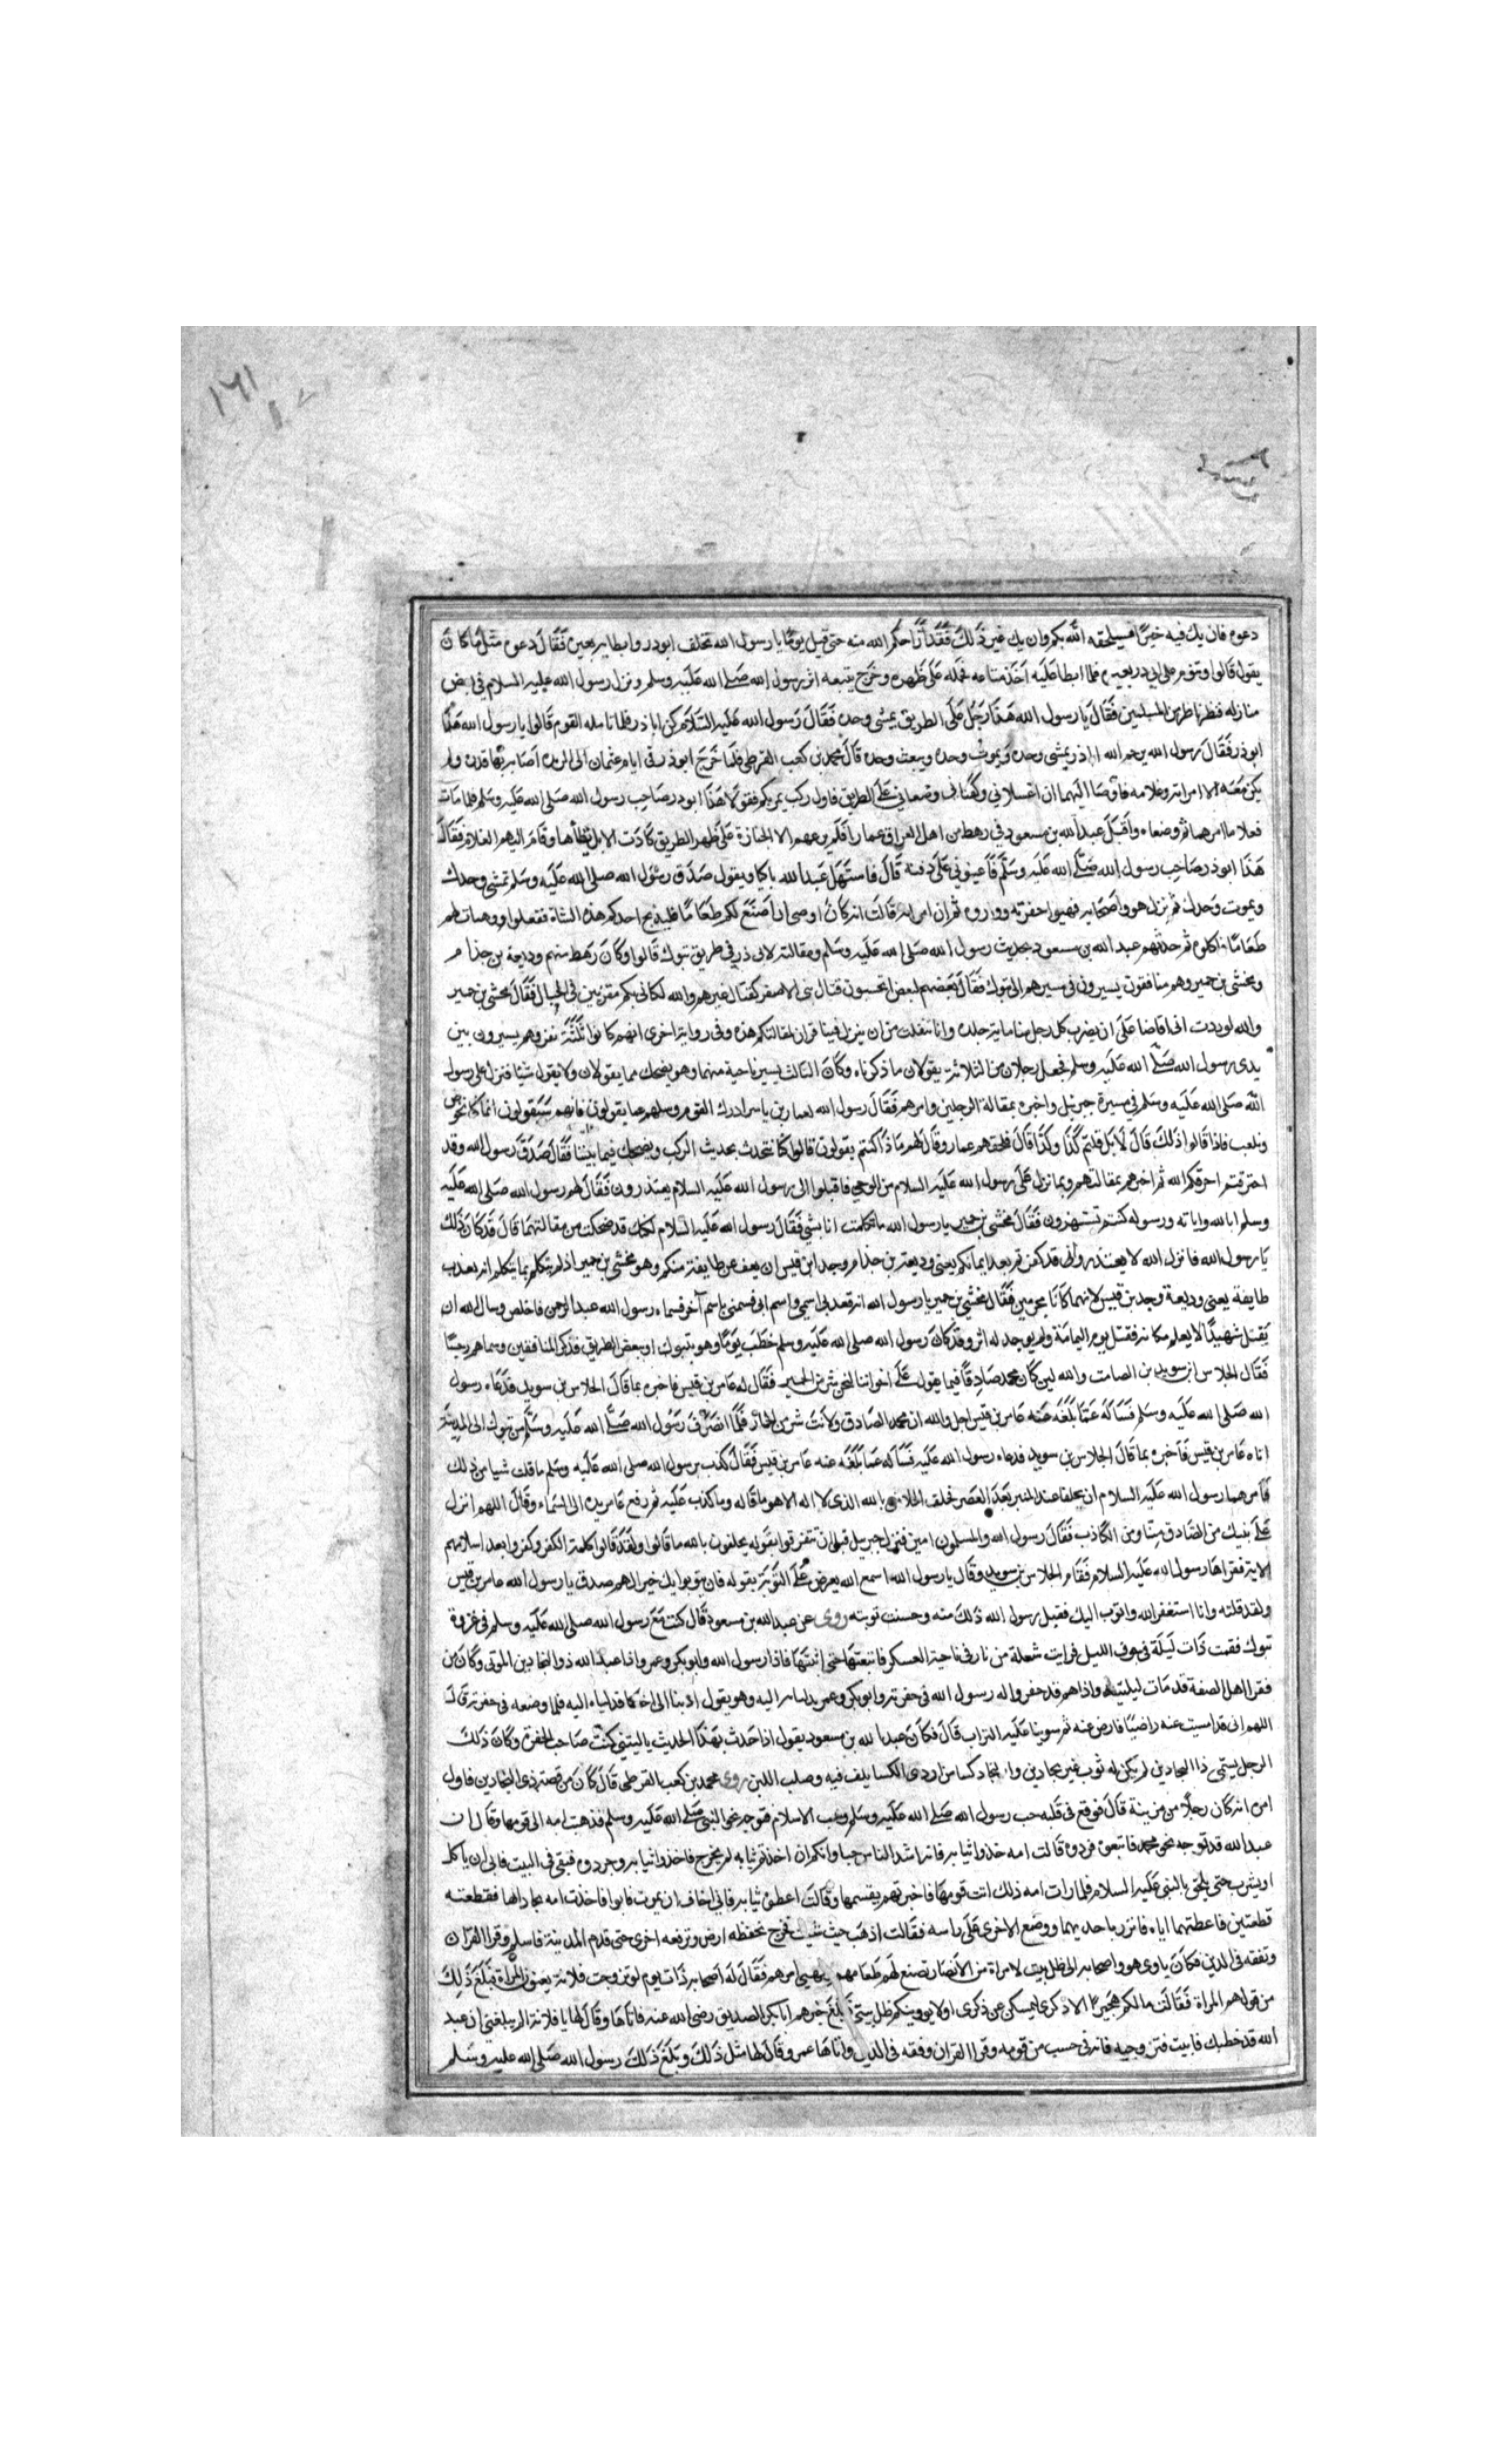 ١٦١
دعوه فان يك فيه خيرًا فسيلحقه الله بكم وان يك غير ذلك فقد اراحكم الله منه حتى قيل يومًا يا رسول الله تخلف ابوذر وابطا به بعيره فقال دعوه مثل ما كان
يقول قالوا وتلوم على ابي ذر بعيره فلما ابطا عليه اخذ متاعه فحمله على ظهره وخرج يتبع اثر رسول الله صلى الله عليه وسلم ونزل رسول الله عليه السلام في بعض
منازله فنظر ناظر من المسلمين فقال يا رسول الله هذا رجل على الطريق يمشي وحده فقال رسول الله عليه السلام كن اباذر فلما تامله القوم قالوا يا رسول الله هذا
ابوذر فقال رسول الله يرحم الله اباذر يمشي وحده ويموت وحده ويبعث وحده قال محمد بن كعب القرطي فلما خرج ابوذر في ايام عثمان الى الربذه اصابه بها قدره ولم
يكن معه الا امراته وغلامه فاوصا اليهما ان اغسلاني وكفناني وضعاني على الطريق فاول ركب يمر بكم فقولا هذا ابوذر صاحب رسول الله صلى الله عليه وسلم فلما مات
فعلا ما امرهما ثم وضعاه واقبل عبد الله بن مسعود في رهط من اهل العراق عمارا فلم يرعهم الا الجنازة على ظهر الطريق كادت الابل تطأها وقام اليهم الغلام فقال
هذا ابوذر صاحب رسول الله صلى الله عليه وسلم فاعينوني على دفنه قال فاستهل عبد الله باكيا ويقول صدق رسول الله صلى الله عليه وسلم تمشي وحدك
وتموت وحدك ثم نزل هو واصحابه فهيوا حفرته وواروه ثم ان امراته قالت انه كان اوصى ان اصنع لكم طعاما فليذبح احدكم هذه الشاة ففعلوا وهيات لهم
طعاما فاكلوه ثم حدثهم عبد الله بن مسعود بحديث رسول الله صلى الله عليه وسلم ومقالته لابي ذر في طريق تبوك قالوا وكان رهط منهم وديعة بن حذام
ومخشي بن حمير وهم منافقون يسيرون في مسيرهم الى تبوك فقال بعضهم لبعض اتحسبون قتال بني الاصفر كقتال غيرهم والله لكاني بكم مقرنين في الحبال فقال مخشي بن حمير
والله لوددت اني اقاضا على ان يضرب كل رجل منا ماية جلده وانا ننفلت من ان ينزل فينا قران لمقالتكم هذه وفي رواية اخرى انهم كانوا ثلثة نفر وهم يسيرون بين
يدي رسول الله صلى الله عليه وسلم فجعل رجلان من الثلاثة يقولان ما ذكرناه وكان الثالث يسير ناحية منهما وهو يضحك مما يقولان ولا يقول شيا فنزل على رسول
الله صلى الله عليه وسلم في مسيرة جبرئيل واخبره بمقالة الرجلين وامرهم فقال رسول الله لعمار بن ياسر ادرك القوم وسلهم عما يقولون فانهم سيقولون انما كنا نخوض
ونلعب فاذا قالوا ذلك قال لا بل قلتم كذا وكذا قال فلحقهم عمار وقال لهم ماذا كنتم يقولون قالوا كنا نتحدث بحديث الركب ويضحك فيما بيننا فقال صدق رسول الله وقد
احترقتم احرقكم الله ثم اخبرهم بمقالتهم وبما نزل على رسول الله عليه السلام من الوحي فاقبلوا الى رسول الله عليه السلام يعتذرون فقال لهم رسول الله صلى الله عليه
وسلم ابالله واياته ورسوله كنتم تستهزون فقال مخشي بن حمير يا رسول الله ما تكلمت انا بشي فقال رسول الله عليه السلام لكنك قد ضحكت من مقالتهما قال قد كان ذلك
يا رسول الله فانزل الله لا يعتذروا قد كفرتم بعد ايمانكم يعني وديعة بن حذام وجد ابن قيس ان يعف عن طايفة منكم وهو مخشي بن حمير اذ لم يتكلم بما يتكلم انه يعذب
طايفة يعني وديعة وجد بن قيس لانهما كانا مجرمين فقال مخشي بن حمير يا رسول الله انه قعد بي اسمي واسم ابي فسمني باسم آخر فسماه رسول الله عبد الرحمن فاخلص وسال الله ان
يقتل شهيدًا لا يعلم مكانه فقتل يوم اليمامة ولم يوجد له اثر وقد كان رسول الله صلى الله عليه وسلم خطب يوما وهو بتبوك او ببعض الطريق فذكر المنافقين وسماهم رجسًا
فقال الجلاس ابن سويد بن الصامت والله لين كان محمد صادقا فيما يقول على اخواننا لنحن شر من الحمير فقال له عامر بن قيس فاخبره بما قال الجلاس بن سويد فدعاه رسول
الله صلى الله عليه وسلم فساله عما بلغه عنه عامر بن قيس اجل والله ان محمد الصادق ولانت شر من الحمار فلما انصرف رسول الله صلى الله عليه وسلم من تبوك الى المدينة
اتاه عامر بن قيس فاخبره بما قال الجلاس بن سويد فدعاه رسول الله عليه فساله عما بلغه عنه عامر بن قيس فقال كذب يا رسول الله صلى الله عليه وسلم ما قلت شيا من ذلك
فامرهما رسول الله عليه السلام ان يحلفا عند المنبر بعد العصر فحلف الجلاس بالله الذي لا اله الا هو ما قاله وما كذب عليه ثم رفع عامر يده الى السماء وقال اللهم انزل
على نبيك من الصادق منا ومن الكاذب فقال رسول الله والمسلمون امين فنزل جبريل قبل ان تتفرقوا بقوله يحلفون بالله ما قالوا ولقد قالوا كلمة الكفر وكفروا بعد اسلامهم
الاية فقراها رسول الله عليه السلام فقام الجلاس بن سويد وقال يا رسول الله اسمع الله يعرض على التوبة بقوله فان يتوبوا يك خيرا لهم صدق يا رسول الله عامر بن قيس
ولقد قلته وانا استغفر الله واتوب اليك فقبل رسول الله ذلك منه وحسنت توبته روى عن عبد الله بن مسعود قال كنت مع رسول الله صلى الله عليه وسلم في غزوة
تبوك فقمت ذات ليلة في جوف الليل فرايت شعلة من نار في ناحية العسكر فاتبعتها حتى اتيتها فاذا رسول الله وابو بكر وعمر واذا عبد الله ذو البجادين المزني وكان من
فقرا اهل الصفة قد مات ليلتيذ واذا هم قد حفروا له رسول الله في حفرته وابو بكر وعمر يدليانه اليه وهو يقول ادنيا الي اخاكما فدلياه اليه فلما وضعه في حفرته قال
اللهم اني قد امسيت عنه راضيا فارض عنه ثم سوينا عليه التراب قال فكان عبد الله بن مسعود يقول اذا حدث بهذا الحديث ياليتني كنت صاحب الحفرة وكان ذلك
الرجل يسمى ذا البجادين لم يكن له ثوب غير بجادين والبجاد كسا من اردى الكسا يلف فيه وصلب اللبن روى محمد بن كعب القرطي قال كان من قصة ذي البجادين فاول
امره انه كان رجلا من مزينة قال فوقع في قلبه حب رسول الله صلى الله عليه وسلم وحب الاسلام فتوجه نحو النبي صلى الله عليه وسلم فذهبت امه الى قومها وقال ان
عبد الله قد توجه نحو محمد فاتبعوه فردوه قالت امه خذوا ثيابه فانه اشد الناس حيا وانكم ان اخذتم ثيابه لم يخرج فاخذوا ثيابه وجردوه فبقي في البيت فابى ان ياكل
او يشرب حتى يلحق بالنبي عليه السلام فلما رات امه ذلك اتت قومها فاخبرتهم بقسمها وقالت اعطوني ثيابه فاني اخاف ان يموت فابوا فاخذت امه بجادا لها فقطعته
قطعتين فاعطتهما اياه فاتزر باحديهما ووضع الاخرى على راسه فقالت اذهب حيث شيت فخرج تحفظه ارض وترفعه اخرى حتى قدم المدينة فاسلم وقرا القران
وتفقه في الدين فكان ياوى هو واصحابه الى ظل بيت لامراة من الانصار تصنع لهم طعامهم ويهيي امرهم فقال له اصحابه ذات يوم لو تزوجت فلانة يعنون المراة فبلغ ذلك
من قولهم المراة فقالت مالكم هجيرا الا ذكرى ليمسكن عن ذكرى او لا يووينكم ظل بيتي بلغ خبرهم ابابكر الصديق رضى الله عنه فاتاها وقال لها يا فلانة الم يبلغني ان عبد
الله قد خطبك فابيت فتزوجيه فانه في حسب من قومه وقرا القران وفقه في الدين واتاها عمر وقال لها مثل ذلك وبلغ ذلك رسول الله صلى الله عليه وسلم